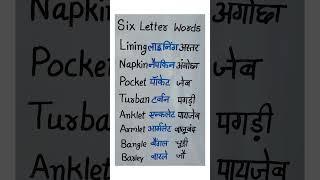 Six Letter Words
Lining लाइनिंग अस्तर
Napkin नैपकिन अंगोछा
Pocket पॉकेट जेब
Turban टर्बन पगड़ी
Anklet एन्कलेट पायजेब
Armlet आर्मलेट बाजूबंद
Bangle बैंगल चूड़ी
Barley बारले जौ